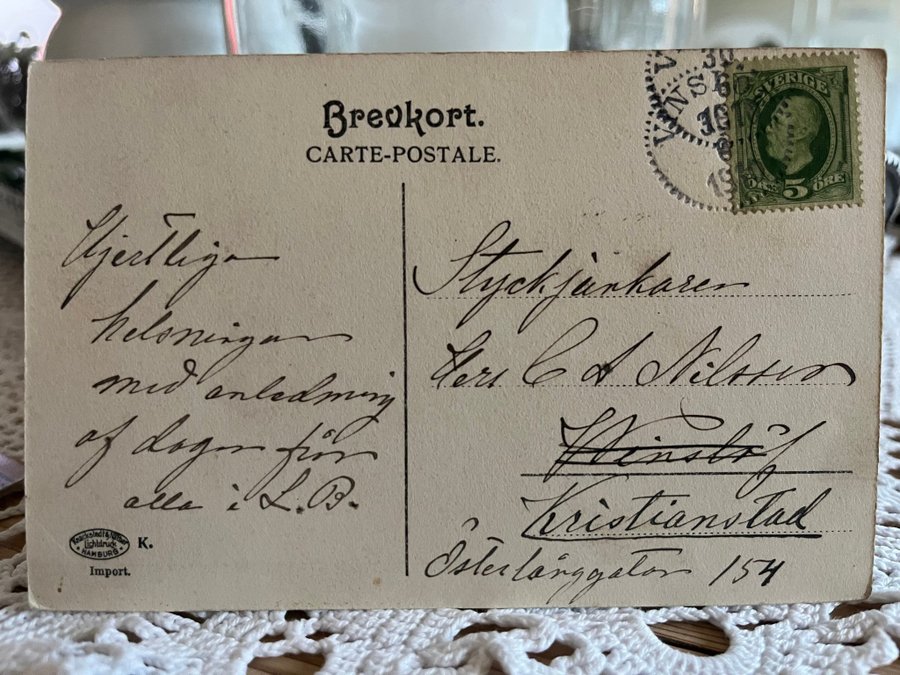 Brevkort.
CARTE-POSTALE.
SVERIGE
5
ÖRE
Hjertliga
helsningar
med anledning
af dagen från
alla i L. B.
Styckjunkaren
Herr C A Nilsson
Winslöf
Kristianstad
Österlånggatan 154
Knackstedt & Näther
Lichtdruck
HAMBURG
K.
Import.